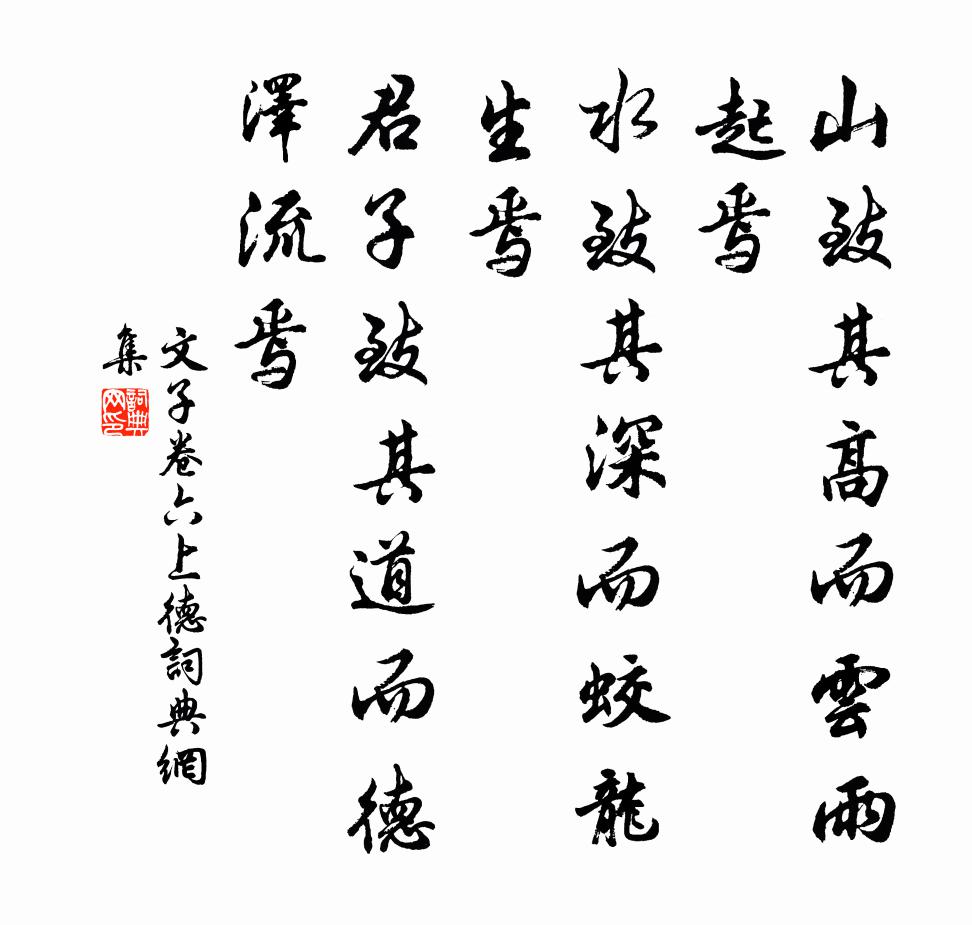 山致其高而雲雨
起焉
水致其深而蛟龍
生焉
君子致其道而德
澤流焉
文子卷六上德詞典網
集
詞典
网印